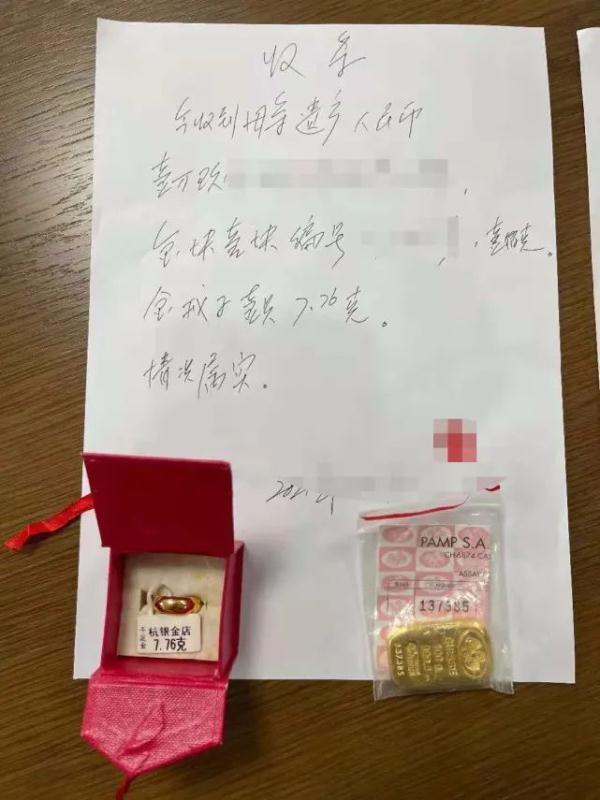 收条
今收到母亲遗产人民币
壹万玖
金块壹块编号 , 壹佰克。
金戒子壹只7.76克。
情况属实。
2021年
千足金
杭银金店
7.76克
PAMP S.A.
CH6874 CA
ASSAY
137385
137385